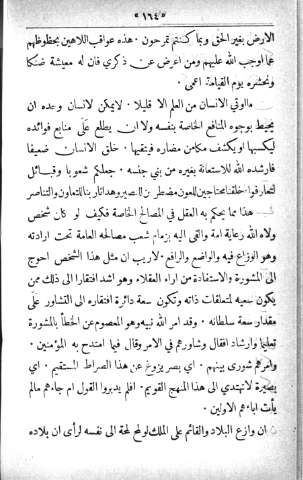 «١٦٤»
الارض بغير الحق وبما كنتم تمرحون ٠ هذه عواقب اللاهين بحظوظهم
عما اوجب الله عليهم ومن اعرض عن ذكري فان له معيشة ضنكا
ونحشره يوم القيامة اعمى ٠
ما اوتي الانسان من العلم الا قليلا ٠ لا يمكن لانسان وحده ان
يحيط بوجوه المنافع الخاصة بنفسه ولا ان يطلع على منابع فوائده
ليكسبها او يكشف مكامن مضاره فيتقيها ٠ خلق الانسان ضعيفا
فارشده الله للاستعانة بغيره من بني جنسه ٠ جعلكم شعوبا وقبائل
لتعارفوا خلقنا محتاجين للعون مضطرين للصبر وهدانا ربنا للتعاون والتناصر
هذا مما يحكم به العقل في المصالح الخاصة فكيف لو كان شخص
ولاه الله رعاية امة والقى اليه بزمام شعب مصالحه العامة تحت ارادته
وهو الوزاع فيه والواضع والرافع ٠ لا ريب ان مثل هذا الشخص احوج
الى المشورة والاستفادة من اراء العقلاء وهو اشد افتقارا الى ذلك ممن
يكون سعيه لمتعلقات ذاته وتكون سعة دائرة افتقاره الى التشاور على
مقدار سعة سلطانه ٠ وقد امر الله نبيه وهو المعصوم عن الخطأ بالمشورة
تعليما وارشاد افقال وشاورهم في الامر وقال فيما امتدح به المؤمنين ٠
وامرهم شورى بينهم ٠ اي بصر يزوغ عن هذا الصراط المستقيم ٠ اي
بصيرة لا تهتدي الى هذا المنهج القويم ٠ افلم يدبروا القول ام جاءهم مالم
يأت اباءهم الاولين ٠
ان وازع البلاد والقائم على الملك لو لمح لمحة الى نفسه لرأى ان بلاده